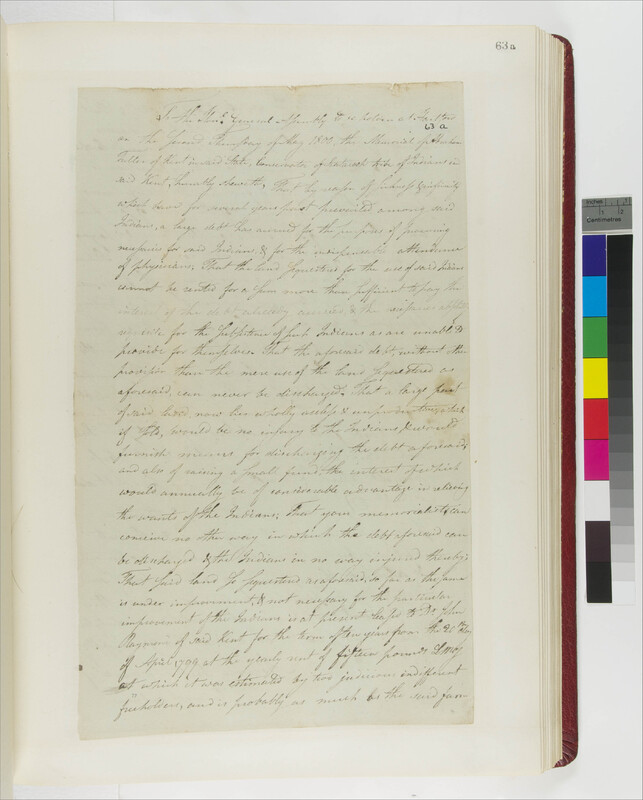 63a
To the Hon.e General Assembly to be holden at Hartford
63 a
on the Second Thursday of May 1801, the Memorial of Abraham
Fuller of Kent in said State, Conservator of Scatacook tribe of Indians in
said Kent, humbly sheweth, That by reason of sickness & infirmity
which have for several years past prevailed among said
Indians, a large debt has accrued for the purpose of procuring
necessaries for said Indians, & for the attendance
of physicians, That the land sequestred for the use of said Indians
cannot be rented for a sum more than sufficient to pay the
interest of the debt already accrued, & the expences
for the subsistence of such Indians as are unable to
provide for themselves. That the aforesaid debt, without other
provision than the mere use of the land sequestred as
aforesaid, can never be discharged. That a large part
of said land now lies wholly useless & unproductive,
of Sale, would be no injury to the Indians & would
furnish means for discharging the debt aforesaid,
and also of raising a small fund, the interest of which
would annually be of considerable advantage in relieving
the wants of the Indians; That your memorialist can
conceive no other way in which the debt aforesaid can
be discharged & the Indians in no way injured thereby;
That said land so sequestred as aforesaid, so far as the same
is under improvement, & not necessary for the particular
improvement of the Indians is at present Leased to John
Raymond of said Kent for the term of ten years from the
of April 1799 at the yearly rent of fifteen pounds
at which it was estimated by two judicious indifferent
freeholders, and is probably as much as the said farm
Inches
Centimetres